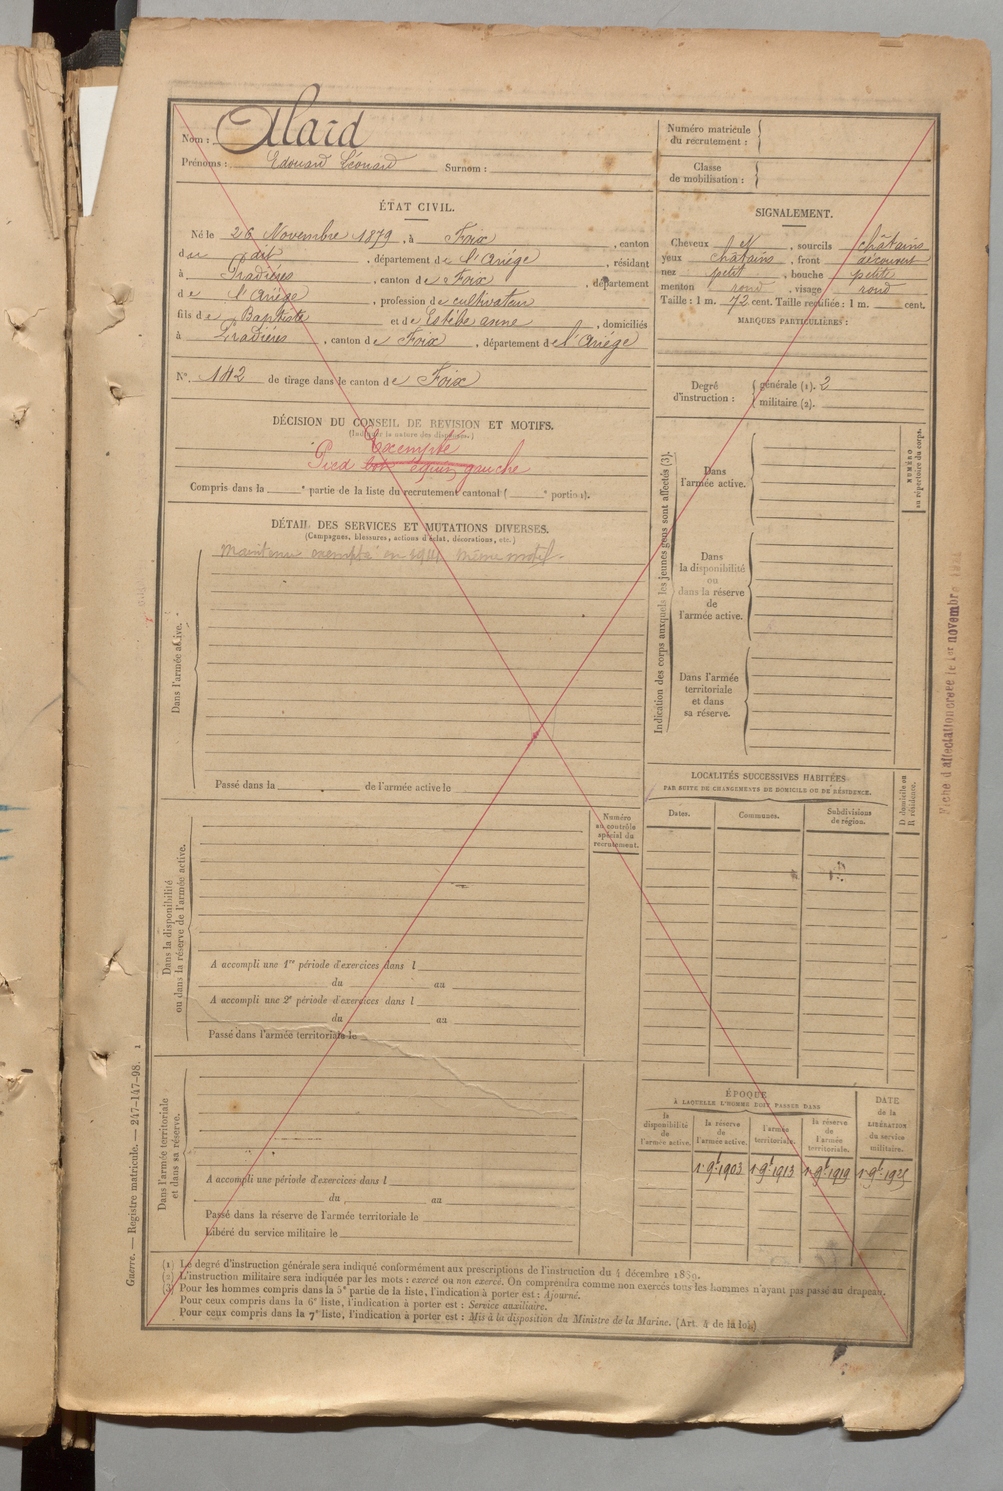 Nom : Alard
Prénoms : Edouard Léonard Surnom :
ÉTAT CIVIL.
Né le 26 Novembre 1879, à Foix, canton
du dit, département de l'Ariège, résidant
à Pradières, canton de Foix, département
de l'Ariège, profession de cultivateur
fils de Baptiste et de Estèbe anne, domiciliés
à Pradières, canton de Foix, département de l'Ariège
N° 142 de tirage dans le canton de Foix
DÉCISION DU CONSEIL DE RÉVISION ET MOTIFS.
(Indiquer la nature des dispenses.)
Exempté
Pied bot équin gauche
Compris dans la e partie de la liste du recrutement cantonal ( e portion).
DÉTAIL DES SERVICES ET MUTATIONS DIVERSES.
(Campagnes, blessures, actions d'éclat, décorations, etc.)
Maintenu exempté en 1914 même motif.
Dans l'armée active.
Passé dans la de l'armée active le
Dans la disponibilité
ou dans la réserve de l'armée active.
Numéro
au contrôle
spécial du
recrutement.
A accompli une 1re période d'exercices dans l
du au
A accompli une 2e période d'exercices dans l
du au
Passé dans l'armée territoriale le
Dans l'armée territoriale
et dans sa réserve.
A accompli une période d'exercices dans l
du au
Passé dans la réserve de l'armée territoriale le
Libéré du service militaire le
Numéro matricule
du recrutement :
Classe
de mobilisation :
SIGNALEMENT.
Cheveux et, sourcils châtains
yeux châtains, front découvert
nez petit, bouche petite
menton rond, visage rond
Taille : 1 m. 72 cent. Taille rectifiée : 1 m. cent.
MARQUES PARTICULIÈRES :
Degré
d'instruction :
générale (1). 2
militaire (2).
Indication des corps auxquels les jeunes gens sont affectés (3).
Dans
l'armée active.
NUMÉRO
au répertoire du corps.
Dans
la disponibilité
ou
dans la réserve
de
l'armée active.
Dans l'armée
territoriale
et dans
sa réserve.
LOCALITÉS SUCCESSIVES HABITÉES
PAR SUITE DE CHANGEMENTS DE DOMICILE OU DE RÉSIDENCE.
Dates. Communes. Subdivisions
de région.
D domicile ou
R résidence.
ÉPOQUE
À LAQUELLE L'HOMME DOIT PASSER DANS
la
disponibilité
de
l'armée active.
la réserve
de
l'armée active.
l'armée
territoriale.
la réserve
de
l'armée
territoriale.
DATE
de la
LIBÉRATION
du service
militaire.
1. 9b 1903 1. 9b 1913 1. 9b 1919 1. 9b 1925
(1) Le degré d'instruction générale sera indiqué conformément aux prescriptions de l'instruction du 4 décembre 1889.
(2) L'instruction militaire sera indiquée par les mots : exercé ou non exercé. On comprendra comme non exercés tous les hommes n'ayant pas passé au drapeau.
(3) Pour les hommes compris dans la 5e partie de la liste, l'indication à porter est : Ajourné.
Pour ceux compris dans la 6e liste, l'indication à porter est : Service auxiliaire.
Pour ceux compris dans la 7e liste, l'indication à porter est : Mis à la disposition du Ministre de la Marine. (Art. 4 de la loi.)
Guerre. — Registre matricule. — 247-147-98. 1
Fiche d'affectation créée le 1er novembre